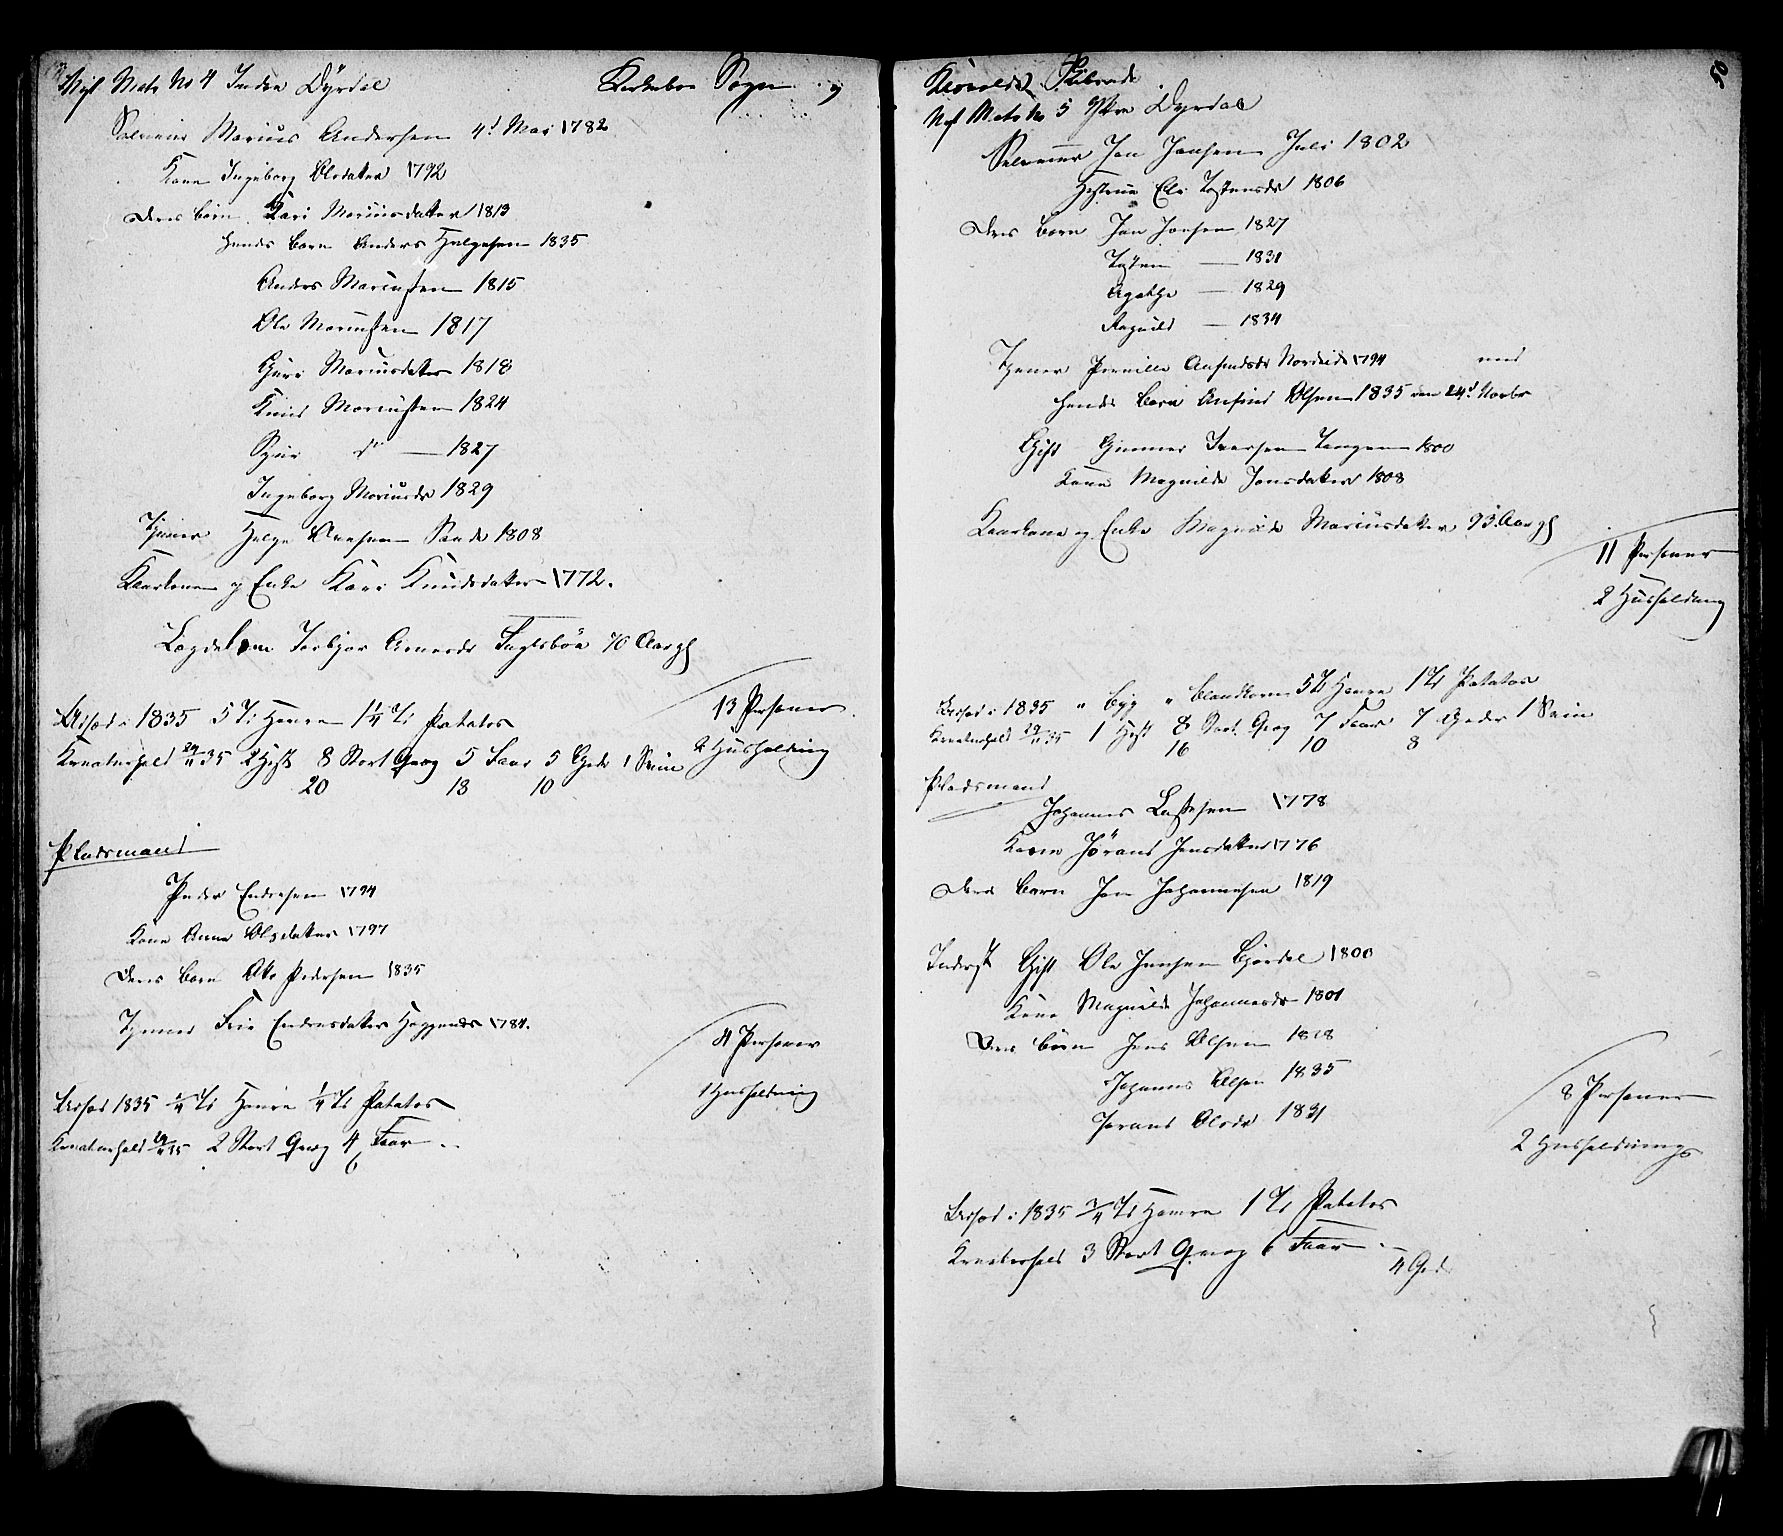 Matr No 4 Indre Dyrdal Kirkebøe Sogn og
Selveier Marius Andersen 4d Mai 1782
Kone Ingeborg Olsdatter 1792
Deres børn Kari Mariusdatter 1813
hendes barn Anders Helgesen 1835
Anders Mariussen 1815
Ole Mariussen 1817
Guri Mariusdatter 1818
Knud Mariussen 1824
Siur do — 1827
Ingeborg Mariusdr 1829
Tjener Helge Sande 1808
Kaarkone og Enke Kari Knudsdatter 1772.
Lægdelem Torbjør 70 Aar gl
13 Personer
2 Husholdning
Udsæd i 1835 5 Tr Havre 1 1/4 Tr Patates
Kreaturhold 24/11 35 2 Hest 8 Stort Qvæg 5 Faar 5 Geder 1 Sviin
20 18 10
Pladsmand
Peder Endresen 1794
Kone Anna Olsdatter 1797
Deres barn Ole Pedersen 1835
Tjener Endresdatter 1784.
4 Personer
1 Husholdning
Udsæd 1835 Tr Havre 1/4 Tr Patates
Kreaturhold 35 2 Stort Qvæg 4 Faar
6
50
Matr No 5 Ytre Dyrdal
Selveier Jon Jonsen Juli 1802
Hustrue Eli Tostensdr 1806
Deres børn Jon Jonsen 1827
Tosten — 1831
Agathe — 1829
Ragnild — 1834
Tjener Pernille Ansfindsdr Nordeide 1794 med
hendes barn Ansfind Olsen 1835 den 24d Novbr
Gift Gunner Iversen Tangen 1800
Kone Magnilde Jonsdatter 1808
Kaarkone og Enke Magnilde Mariusdatter 93 Aar gl
11 Personer
2 Husholdning
Udsæd i 1835 " byg " blandkorn 5 Tr Havre 1 Tr Patates
Kreaturhold 35 1 Hest 8 Stort Qvæg 7 Faar 7 Geder 1 Sviin
16 10 8
Pladsmand
Johannes Lassesen 1778
Kone Jørand Jensdatter 1776
Deres barn Jon Johannesen 1819
Inderst Gift Ole Jensen 1800
Kone Magnilde Johannesdr 1801
Deres børn Jens Olsen 1828
Johannes Olsen 1835
Jorand Olsdr 1831
8 Personer
2 Husholdnings
Udsæd i 1835 3/4 Tr Havre 1 Tr Patates
Kreaturhold 3 Stort Qvæg 6 Faar
4 Ged